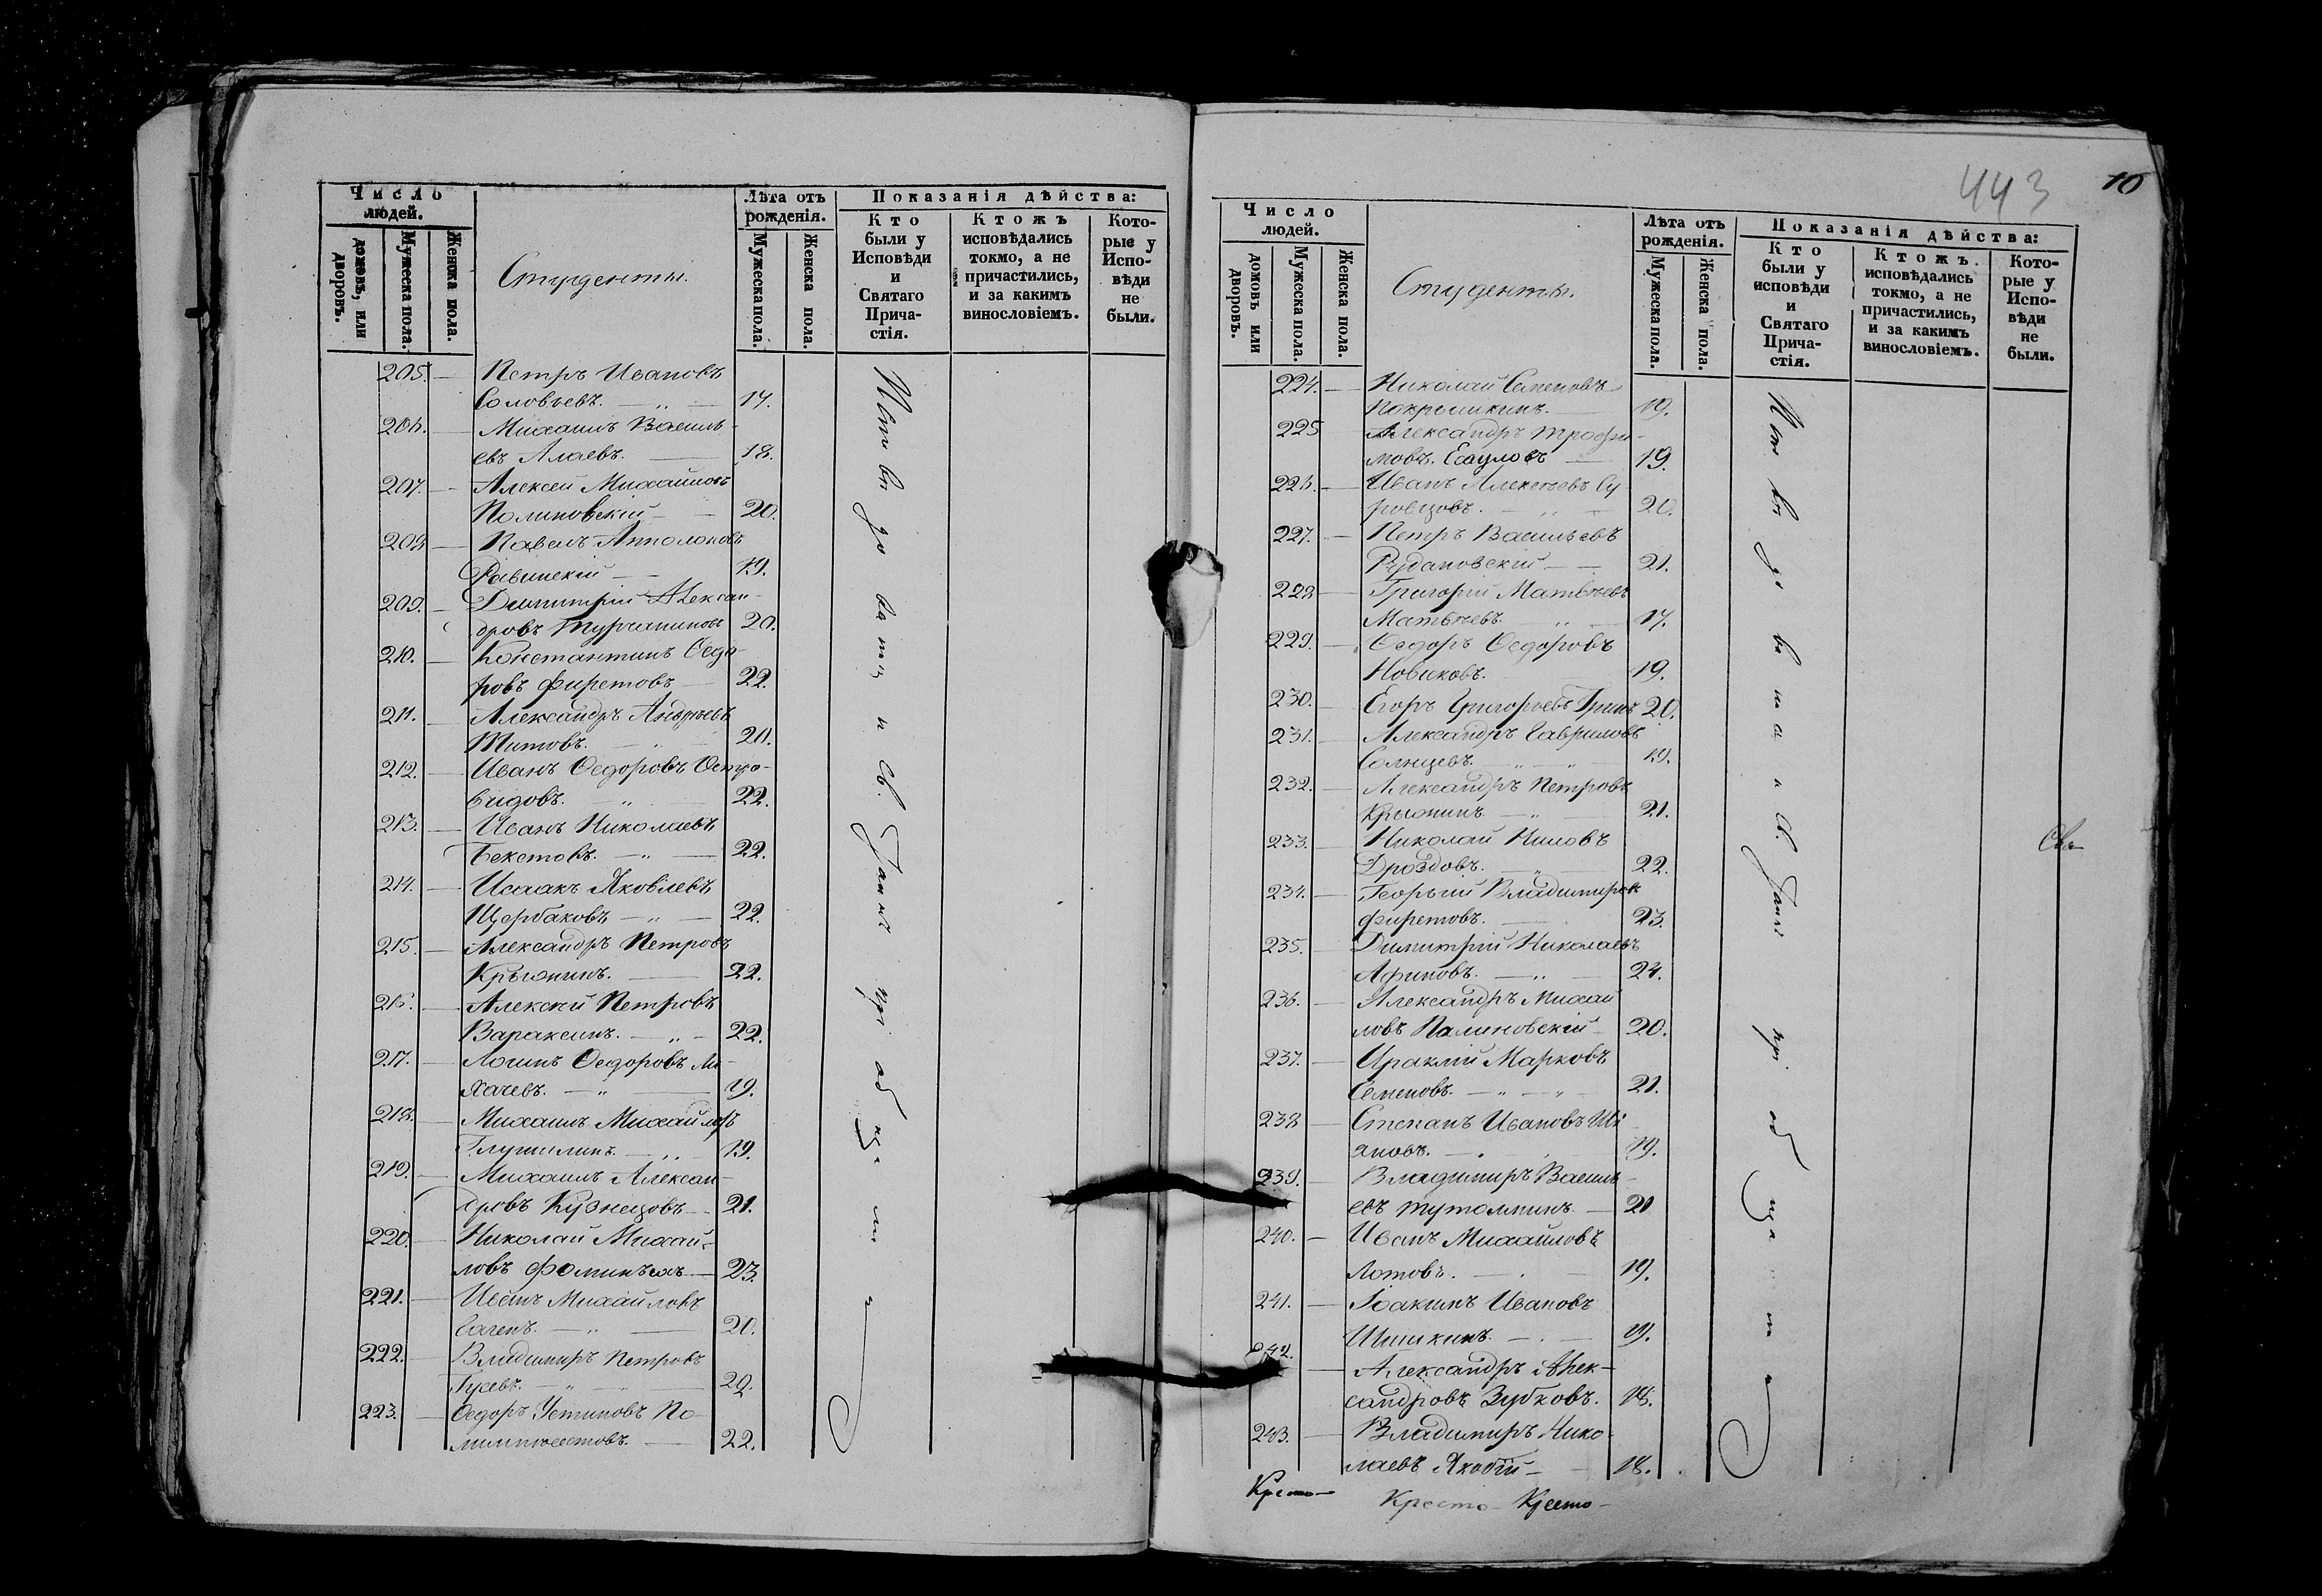 Число людей.
домовъ, или дворовъ.
Мужеска пола.
Женска пола.
Студенты.
Лѣта отъ рожденія.
Мужеска пола.
Женска пола.
Показанія дѣйства:
Кто были у Исповѣди и Святаго Прича-стія.
Ктожъ исповѣдались токмо, а не причастились, и за какимъ винословіемъ.
Кото-рые у Испо-вѣди не были.
205. — Петръ Ивановъ
Соловьевъ. — 17.
206. — Михаилъ Василь-
евъ Алаевъ. — 18.
207. — Алексей Михайловъ
Полиновскій — 20.
208 — Павелъ Апполоновъ
Равинскій — 19.
209. — Димитрій Алексан-
дровъ Турчаниновъ 20.
210. — Константинъ Ѳедо-
ровъ Фиретовъ — 22.
211. — Александръ Андреевъ
Титовъ. 20.
212. — Иванъ Ѳедоровъ Остро-
видовъ. — 22.
213. — Иванъ Николаевъ
Бекетовъ. — 22.
214. — Исаакъ Яковлевъ
Щербаковъ — 22.
215. — Александръ Петровъ
Крысинъ. — 22.
216. — Алексѣй Петровъ
Вараксинъ. — 22.
217. — Логинъ Ѳедоровъ Ли-
хачевъ. — 19.
218. — Михаилъ Михайловъ
— 19.
219. — Михаилъ Алексан-
дровъ Кузнецовъ — 21.
220. — Николай Михай-
ловъ Фоминъ — 23.
221. — Иванъ Михайловъ
20.
222. — Владимиръ Петровъ
Гусевъ. — 20.
223. — Ѳедоръ Устиновъ По-
22.
443
10
Число людей.
домовъ или дворовъ.
Мужеска пола.
Женска пола.
Студенты.
Лѣта отъ рожденія.
Мужеска пола.
Женска пола.
Показанія дѣйства:
Кто были у исповѣди и Святаго Прича-стія.
Ктожъ. исповѣдались токмо, а не причастились, и за какимъ винословіемъ.
Кото-рые у Испо-вѣди не были.
224. — Николай Семеновъ
Покрышкинъ. — 19.
225 Александръ Трофи-
мовъ. Есауловъ — 19.
226. — Иванъ Алексѣевъ Су-
ровцовъ. — 20.
227. — Петръ Васильевъ
Рудановскій — 21.
228 — Григорій Матвѣевъ
Матвѣевъ. — 17.
229. — Ѳедоръ Ѳедоровъ
Новиковъ. 19.
230. — Егоръ Григорьевъ 20.
231. — Александръ Гавриловъ
Солнцевъ. 19.
232. — Александръ Петровъ
21.
233. — Николай Ниловъ
Дроздовъ. 22.
234. — Георгій Владимировъ
Фиретовъ. 23.
235. — Димитрій Николаевъ
Афиновъ. — 24.
236. — Александръ Михай
ловъ Палиновскій — 20.
237. — Ираклій Марковъ
Семеновъ. — 21.
238 — Степанъ Ивановъ Ши
ановъ. — 19.
239. — Владимиръ Василь-
евъ Тутолминъ. — 21
240. — Иванъ Михайловъ
Лотовъ. — 19.
241. — Іоакимъ Ивановъ
Шишкинъ. — 19.
242. — Александръ Алек-
сандровъ Зубковъ. 18.
243. — Владимиръ Нико-
лаевъ Якобій — 18.
Кресто- Кресто- Кресто-